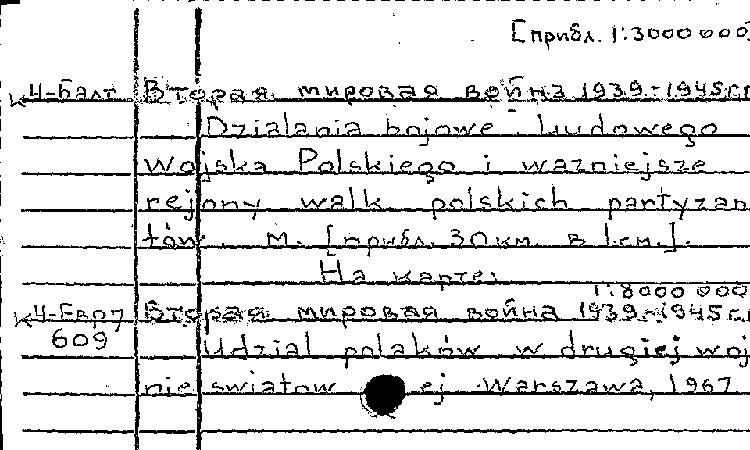 [прибл. 1:3000 000]
Ч-Балт Вторая мировая война 1939-1945гг
Dzialania bojowe Ludowego
Wojska Polskiego i wazniejsze
rejony walk polskich partyzan
tów. М. [прибл. 30км. в 1см.].
На карте:
1:8000 000
Вторая мировая война 1939-1945гг
609 Udzial polaków w drugiej woj
nie swiatow ej Warszawa, 1967